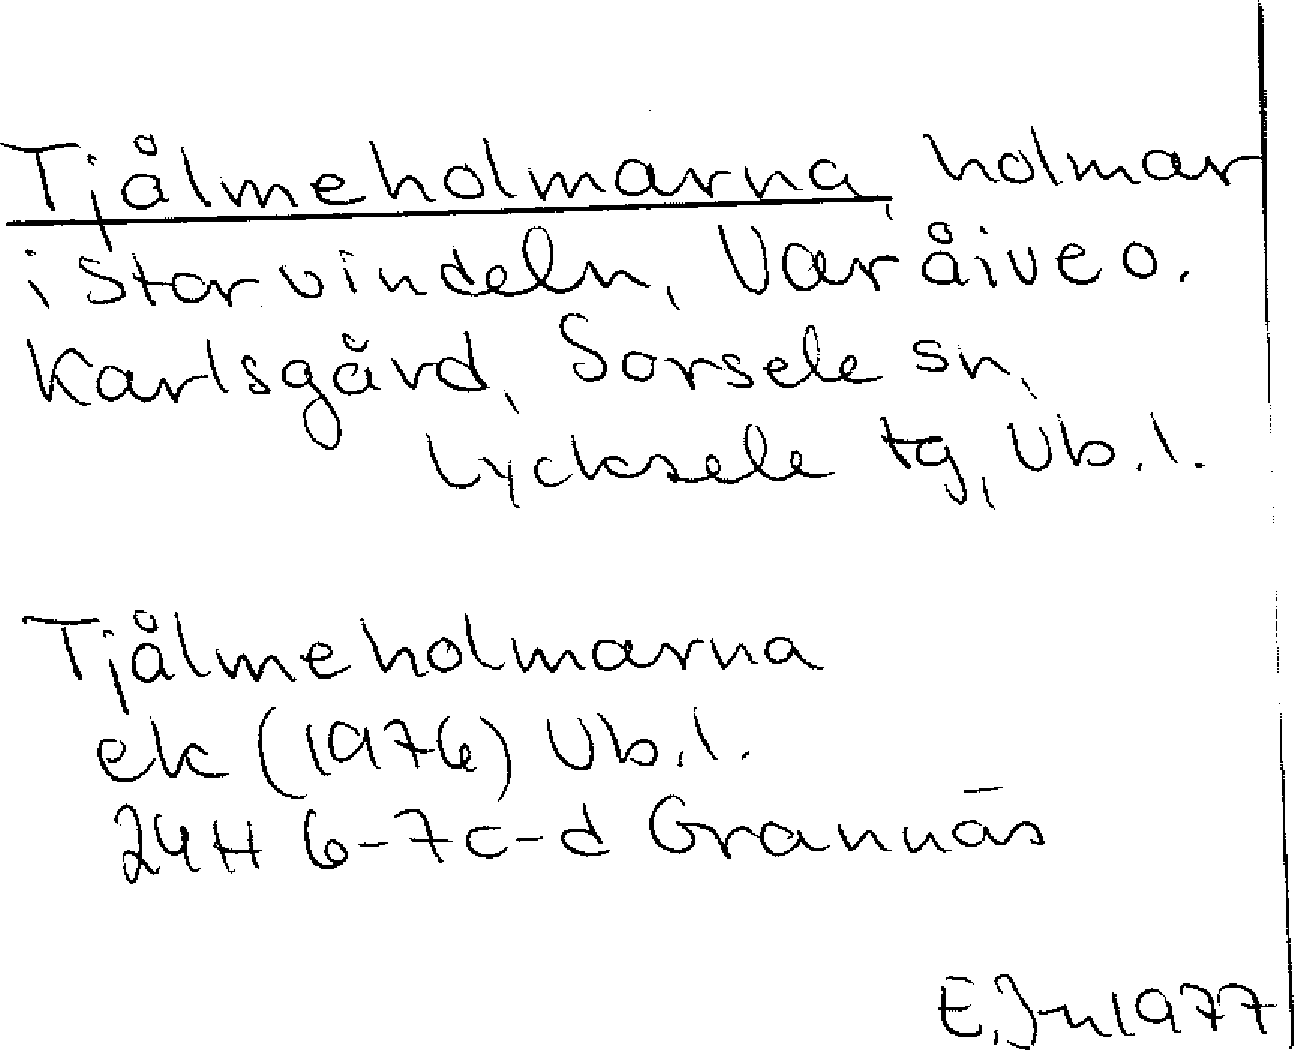 Tjålmeholmarna, holmar
i Storvindeln, Varåive o.
Karlsgård, Sorsele sn,
Lycksele tg, Vb.l.
Tjålmeholmarna
ek (1976) Vb.l.
24H 6-7c-d Grannäs
E.Jn 1977